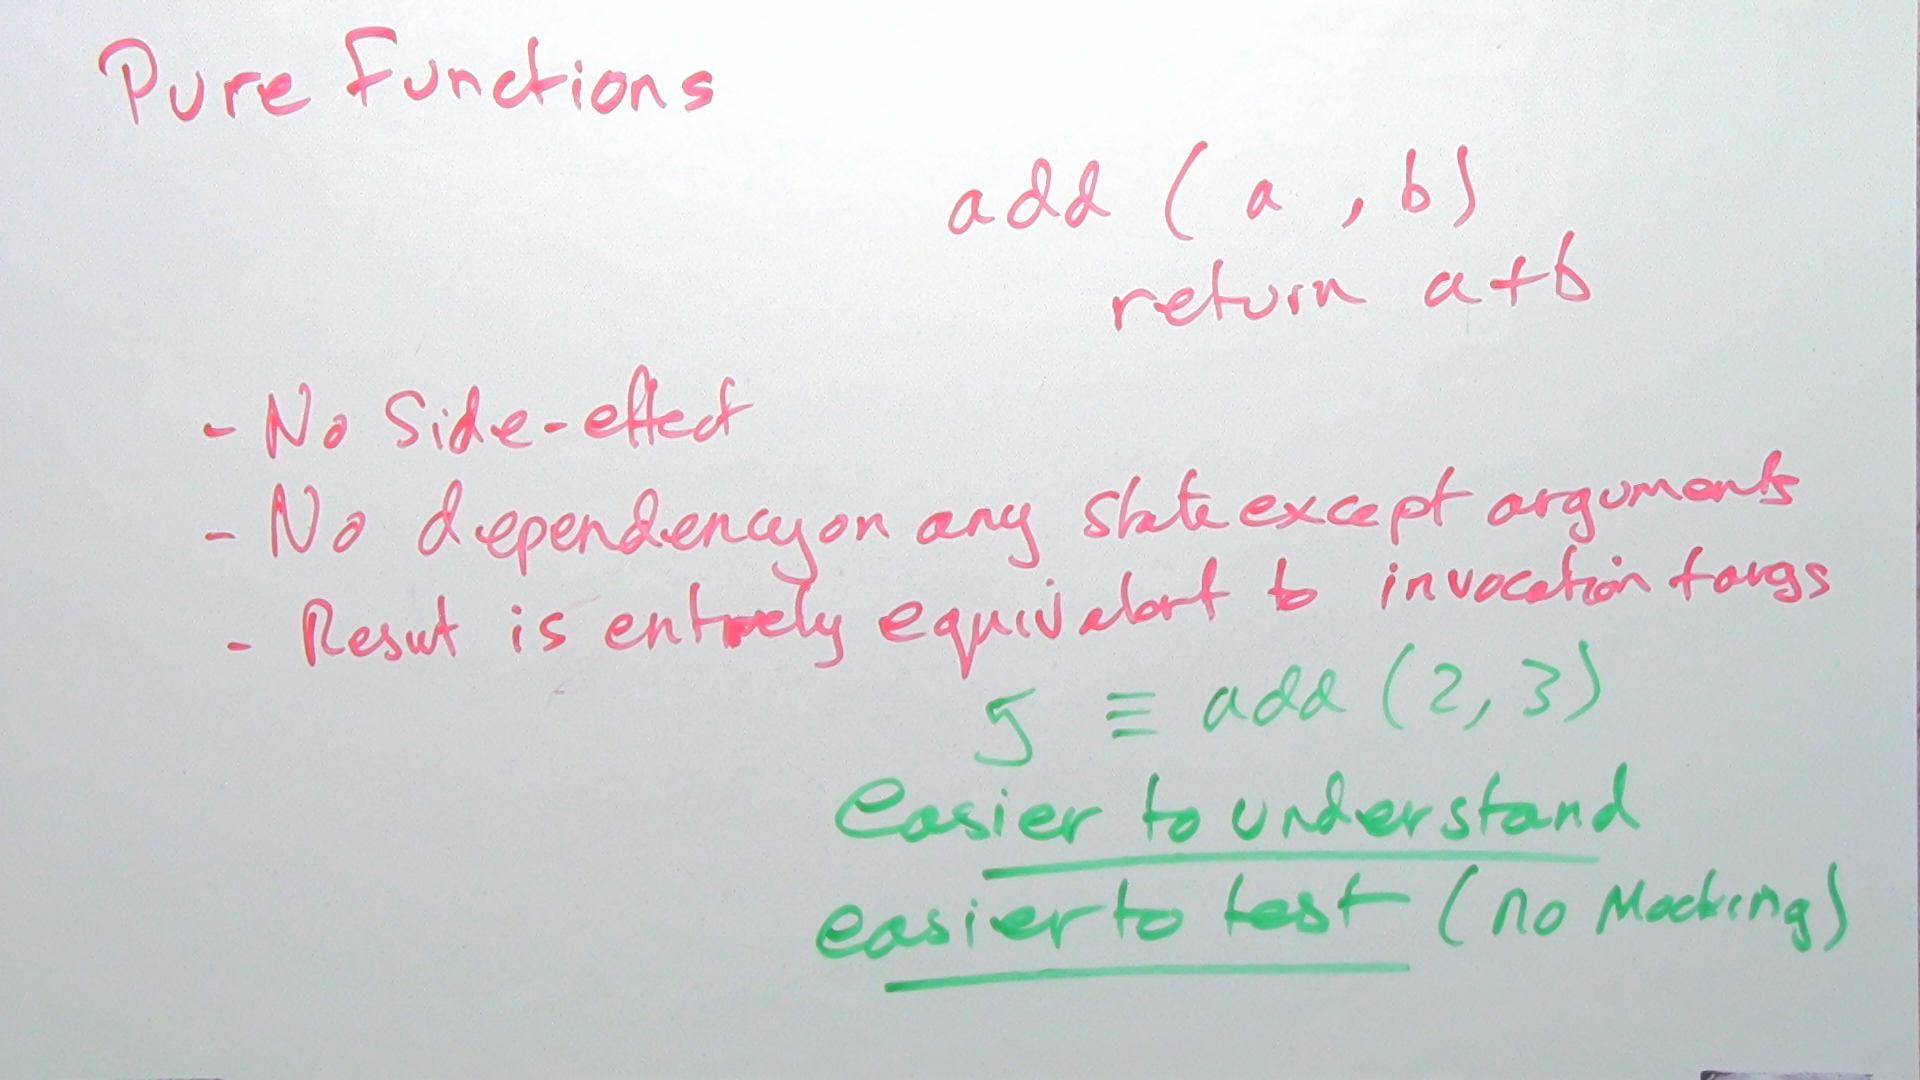 Pure Functions
add ( a , b )
return a+b
- No Side-effect
- No dependency on any state except arguments
- Result is entirely equivalent to invocation + args
5 ≡ add (2, 3)
easier to understand
easier to test (no Mocking)